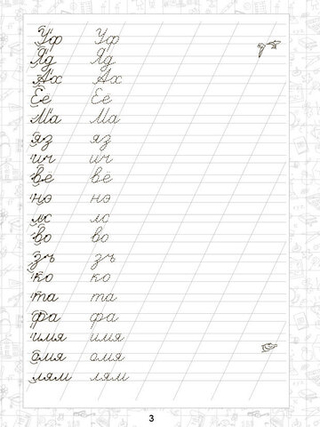 Уф Уф
Яд Яд
Ах Ах
Её Её
Ма Ма
яз яз
ич ич
вё вё
нэ нэ
лс лс
во во
зъ зъ
ко ко
та та
фа фа
имя имя
олия олия
лялм лялм
3